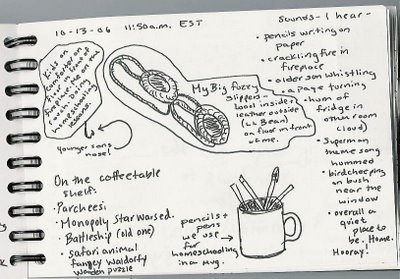 10-13-06 11:50a.m. EST
Kids on
comforter on
floor in front of
fire w/me on the
couch. Doing
homeschooling
lessons.
younger sons
nose!
My Big fuzzy
slippers-
wool inside +
leather outside
(LL Bean)
on floor in front
of me.
Sounds - I hear -
• pencils writing on
paper
• crackling fire in
fireplace
• older son whistling
• a page turning
• hum of
fridge in
other room
(loud)
• Superman
theme song
hummed
• bird cheeping
on bush
near the
window
• overall a
quiet
place to
be. Home.
Hooray!
On the coffeetable
shelf:
• Parcheesi
• Monopoly Star Wars ed.
• Battleship (old one)
• safari animal
fancy Waldorfy
wooden puzzle
pencils +
pens
we use
for
homeschooling
in a mug.